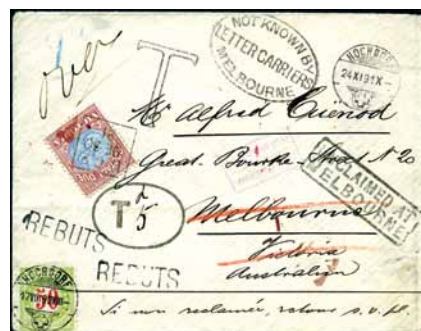 over
T
NOT KNOWN BY
LETTER CARRIERS
MELBOURNE
HOCHDORF
24 XI 91 X-
Mr Alfred Cuénod
Great Bourke Street N° 20
UNCLAIMED AT
MELBOURNE
T 2/5
Melbourne
Victoria
Australien
REBUTS
REBUTS
HOCHDORF
50
Si non reclamér, retour s. v. pl.